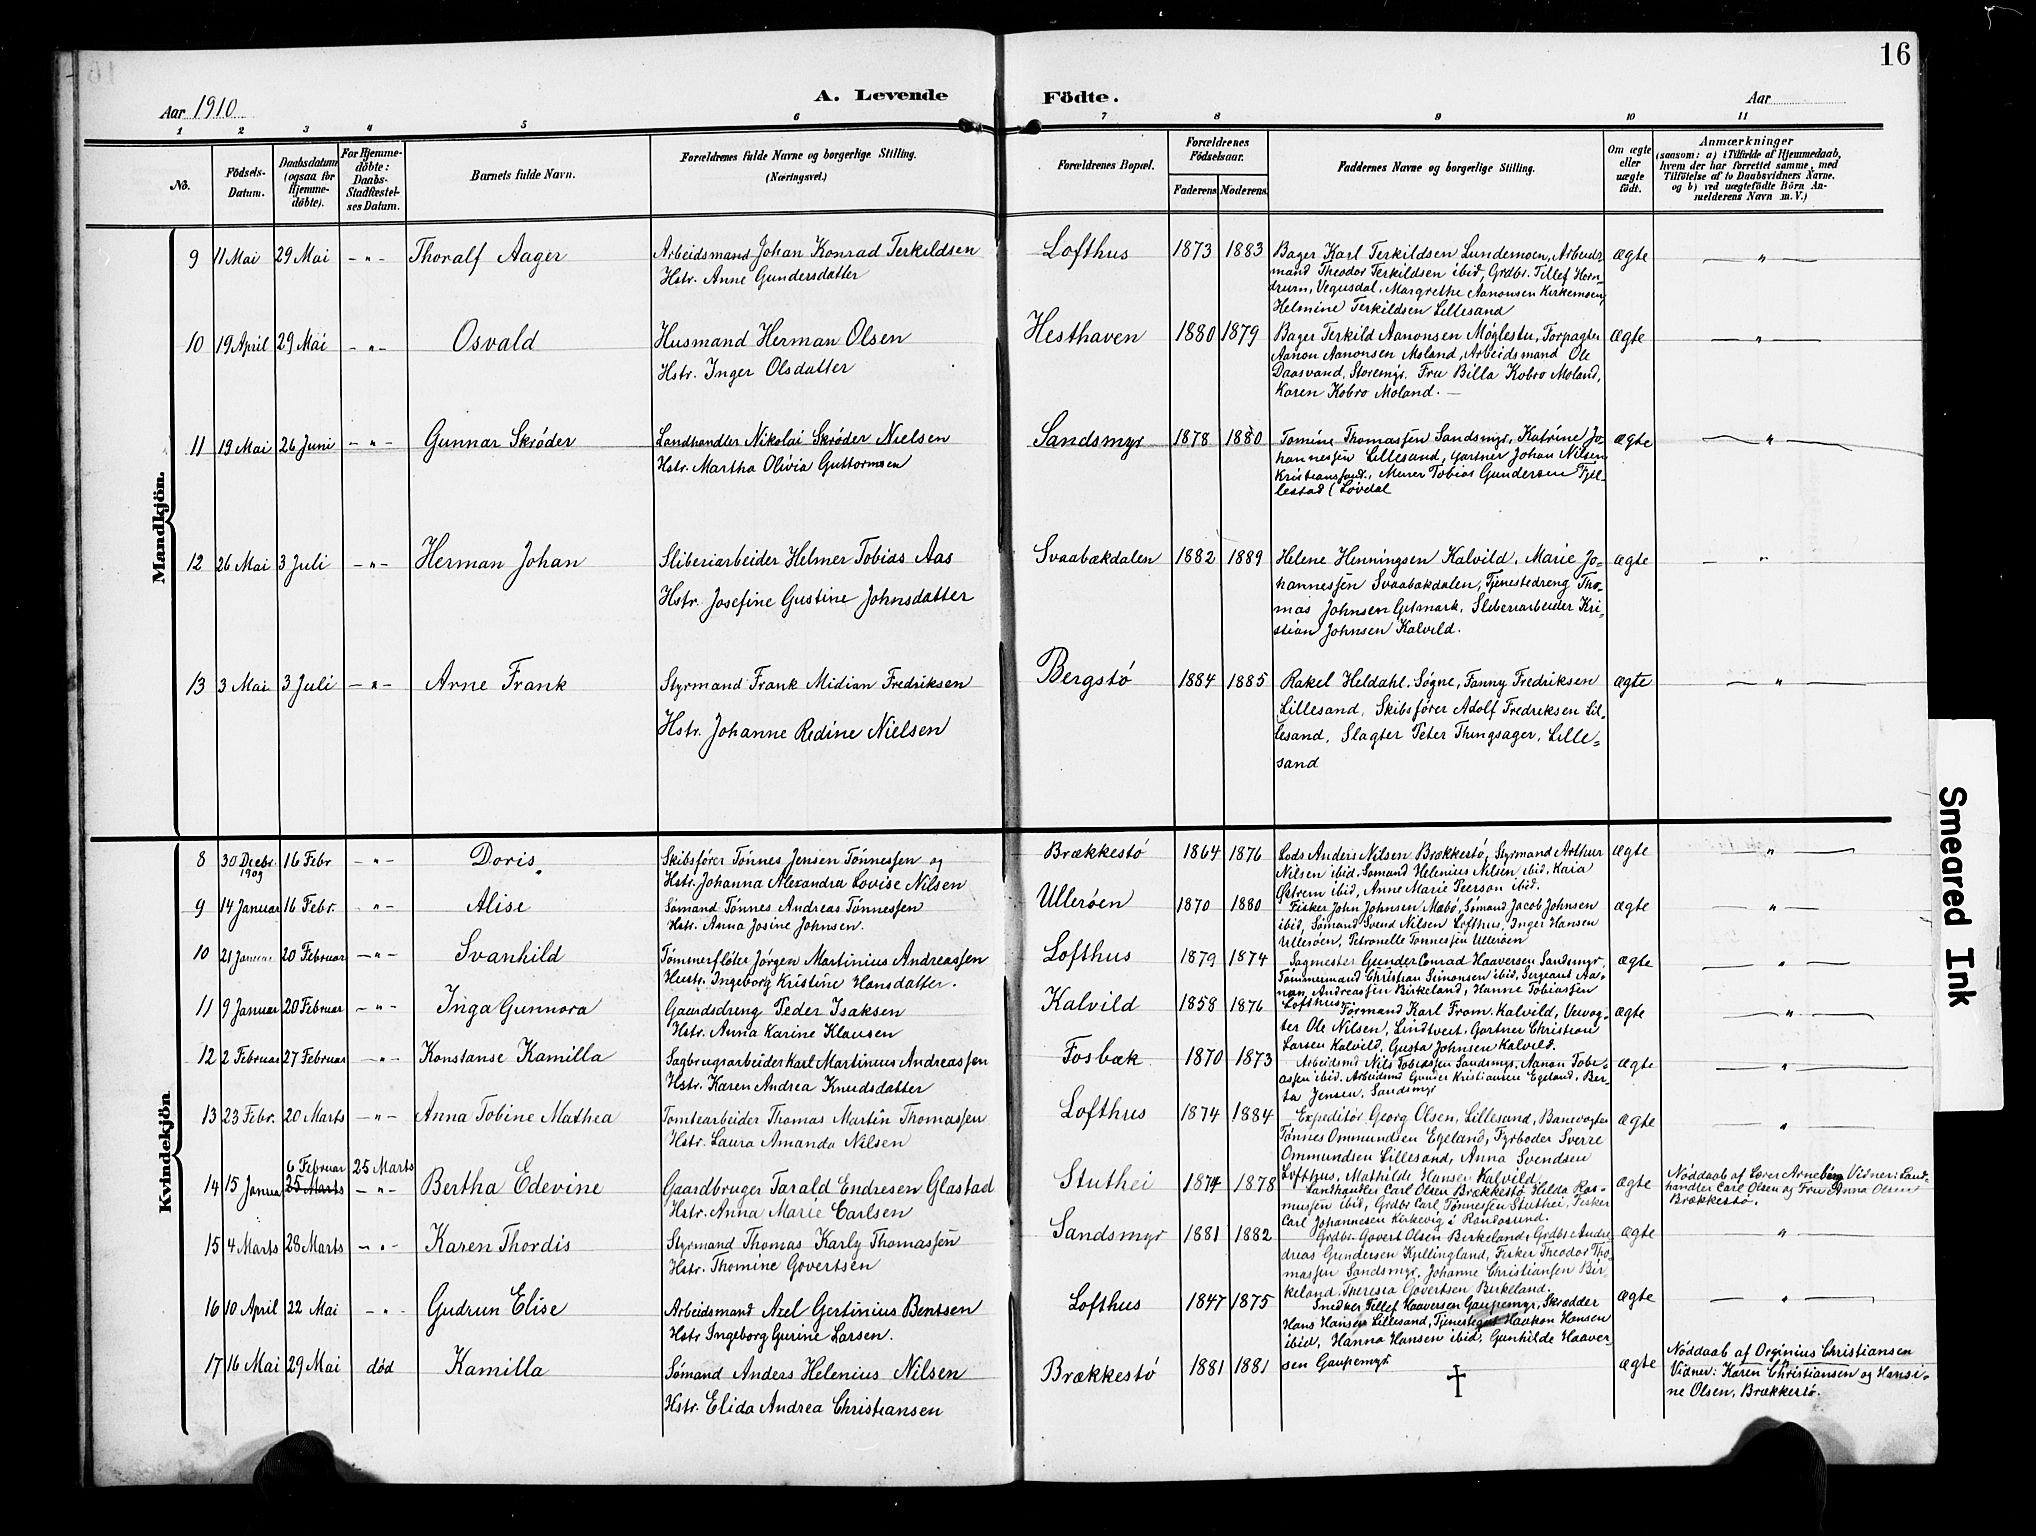 16
Aar 1910
A. Levende Födte.
Aar
1 2 3 4 5 6 7 8 9 10 11
No.
Födsels-Datum.
Daabsdatum (ogsaa for Hjemme-döbte).
For Hjemme-döbte: Daabs-Stadfæstel-ses Datum.
Barnets fulde Navn.
Forældrenes fulde Navne og borgerlige Stilling. (Næringsvei.)
Forældrenes Bopæl.
Forældrenes Födselsaar.
Faderens Moderens.
Faddernes Navne og borgerlige Stilling.
Om ægte eller uægte födt.
Anmærkninger
(saasom: a) i Tilfælde af Hjemmedaab,
hvem der har forrettet samme, med
Tilföielse af to Daabsvidners Navne.
og b) ved uægtefödte Börn An-
melderens Navn m. V.)
Mandkjön.
9 11 Mai 29 Mai – " – Thoralf Aager
Arbeidsmand Johan Konrad Terkildsen
Hstr. Anne Gundersdatter
Lofthus 1873 1883
Bager Karl Terkildsen Lundemoen, Arbeids-
mand Theodor Terkildsen ibid, Grdbr. Tillef Horn-
drum, Vegusdal, Margrethe Aanonsen Kirkemoen,
Helmine Terkildsen Lillesand
ægte – " –
10 19 April 29 Mai – " – Osvald
Husmand Herman Olsen
Hstr. Inger Olsdatter
Hesthaven 1880 1879
Bager Terkild Aanonsen Møglestu, Forpagter
Aanon Aanonsen Moland, Arbeidsmand Ole
Daasvand, Storemyr. Fru Billa Kobro Moland,
Karen Kobro Moland. –
ægte – " –
11 19 Mai 26 Juni – " – Gunnar Skrøder
Landhandler Nikolai Skrøder Nielsen
Hstr. Martha Olivia Guttormsen
Sandsmyr 1878 1880
Tomine Thomassen Sandsmyr, Katrine Jo-
hannessen Lillesand, Gartner Johan Nilsen
Kristianssand., Murer Tobias Gundersen Fjel-
lestad (Løvdal
ægte – " –
12 26 Mai 3 Juli – " – Herman Johan
Sliberiarbeider Helmer Tobias Aas
Hstr. Josefine Gustine Johnsdatter
Svaabækdalen 1882 1889
Helene Henningsen Kalvild, Marie Jo-
hannessen Svaabækdalen, Tjenestedreng Tho-
mas Johnsen Gitmark, Sliberiarbeider Kri-
stian Johnsen Kalvild.
ægte – " –
13 3 Mai 3 Juli – " – Arne Frank
Styrmand Frank Midian Fredriksen
Hstr. Johanne Redine Nielsen
Bergstø 1884 1885
Rakel Heldahl, Søgne, Fanny Fredriksen
Lillesand, Skibsfører Adolf Fredriksen Lil-
lesand, Slagter Peter Thingsager, Lille-
sand
ægte – " –
Kvindekjön
8 30 Decbr. 1909 16 Febr – " – Doris
Skibsfører Tønnes Jensen Tønnessen og
Hstr. Johanna Alexandra Lovise Nilsen
Brækkestø 1864 1876
Lods Anders Nilsen Brækkestø, Styrmand Arthur
Nilsen ibid, Sømand Helenius Nilsen ibid, Kaia
Østrem ibid, Anne Marie Peerson ibid.
ægte – " –
9 14 Januar 16 Febr. – " – Alise
Sømand Tønnes Andreas Tønnessen
Hstr. Anna Josine Johnsen.
Ullerøen 1870 1880
Fisker John Johnsen Mæbø, Sømand Jacob Johnsen
ibid, Sømand Svend Nilsen Lofthus, Inger Hansen
Ullerøen, Petronelle Tønnessen Ullerøen
ægte – " –
10 21 Januar 20 Februar – " – Svanhild
Tømmerfløter Jørgen Martinius Andreassen
Hustr. Ingeborg Kristine Hansdatter.
Lofthus 1879 1874
Sagmester Gunder Conrad Haaversen Sandsmyr,
Tømmermand Christian Simonsen ibid, Sergeant Aa-
non Andreassen Birkeland, Hanne Tobiassen
Lofthus
ægte – " –
11 9 Januar 20 Februar – " – Inga Gunnora
Gaardsdreng Peder Isaksen
Hstr. Anna Karine Klausen
Kalvild 1858 1876
Formand Karl From. Kalvild, Veivog-
ter Ole Nilsen, Lindtveit, Gartner Christian
Larsen Kalvild, Gusta Johnsen Kalvild.
ægte – " –
12 2 Februar 27 Februar – " – Konstanse Kamilla
Sagbrugsarbeider Karl Martinius Andreassen
Hstr. Karen Andrea Knudsdatter
Fosbæk 1870 1873
Arbeidsmd Nils Tobiassen Sandsmyr, Aanon Tobi-
assen ibid. Arbeidsmd Gunder Kristiansen Egeland, Ber-
ta Jensen, Sandsmyr
ægte – " –
13 23 Febr. 20 Marts – " – Anna Tobine Mathea
Tomtearbeider Thomas Martin Thomassen
Hstr. Laura Amanda Nilsen
Lofthus 1874 1884
Expeditør Georg Olsen, Lillesand, Banevogter
Tønnes Ommundsen Egeland, Fyrbøder Sverre
Ommundsen Lillesand, Anna Svendsen
Lofthus, Mathilde Hansen Kalvild
ægte – " –
14 15 Januar 6 Februar 25 Marts 25 Marts – " – Bertha Edevine
Gaardbruger Tarald Endresen Glastad
Hstr. Anna Marie Carlsen
Stuthei 1874 1878
Landhandler Carl Olsen Brækkestø Helda Ras-
mussen ibid, Grdbr Carl Tønnessen Stuthei, Fisker
Carl Johannesen Kirkevig i Randøsund.
ægte
Nøddaab af Lærer Arneberg Vidner: Land-
handler Carl Olsen og Fru Anna Olsen
Brækkestø.
15 4 Marts 28 Marts – " – Karen Thordis
Styrmand Thomas Karly Thomassen
Hstr. Thomine Govertsen
Sandsmyr 1881 1882
Grdbr. Govert Olsen Birkeland, Grdbr Andre-
dreas Gundersen Kyllingland, Fisker Theodor Tho-
massen Sandsmyr, Johanne Christiansen Bir-
keland, Theresia Govertsen Birkeland.
ægte "
16 10 April 22 Mai – " – Gudrun Elise
Arbeidsmand Axel Gertinius Bentsen
Hstr Ingeborg Gurine Larsen.
Lofthus 1847 1875
Snedker Tillef Haaversen Gaupemyr, Skrædder
Hans Hansen Lillesand, Tjenestegut Haakon Hansen
ibid, Hanna Hansen ibid, Gunhilde Haaver-
sen Gaupemyr
ægte – " –
17 16 Mai 29 Mai død Kamilla
Sømand Anders Helenius Nilsen
Hstr. Elida Andrea Christiansen
Brækkestø 1881 1881
ægte
Nøddaab af Orginius Christiansen
Vidner: Karen Christiansen og Hansi-
ne Olsen, Brækkestø.
Smeared Ink